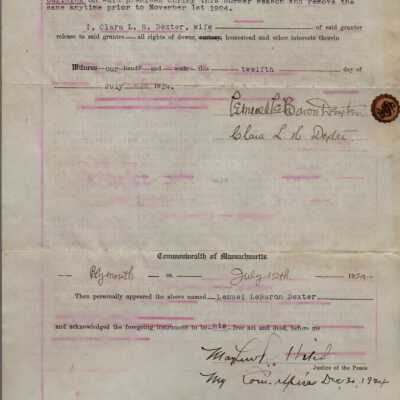 on said premises during this summer season and remove the
same anytime prior to November 1st 1924.
I, Clara L. H. Dexter, wife of said grantor
release to said grantee all rights of dower, curtesy, homestead and other interests therein
Witness our hands and seals this twelfth day of
July 1924.
Lemuel LeBaron Dexter
Clara L H Dexter
Commonwealth of Massachusetts
Plymouth ss. July 12th 1924
Then personally appeared the above named Lemuel LeBaron Dexter
and acknowledged the foregoing instrument to be his free act and deed, before me
Justice of the Peace
My Com. expires Dec. 1924